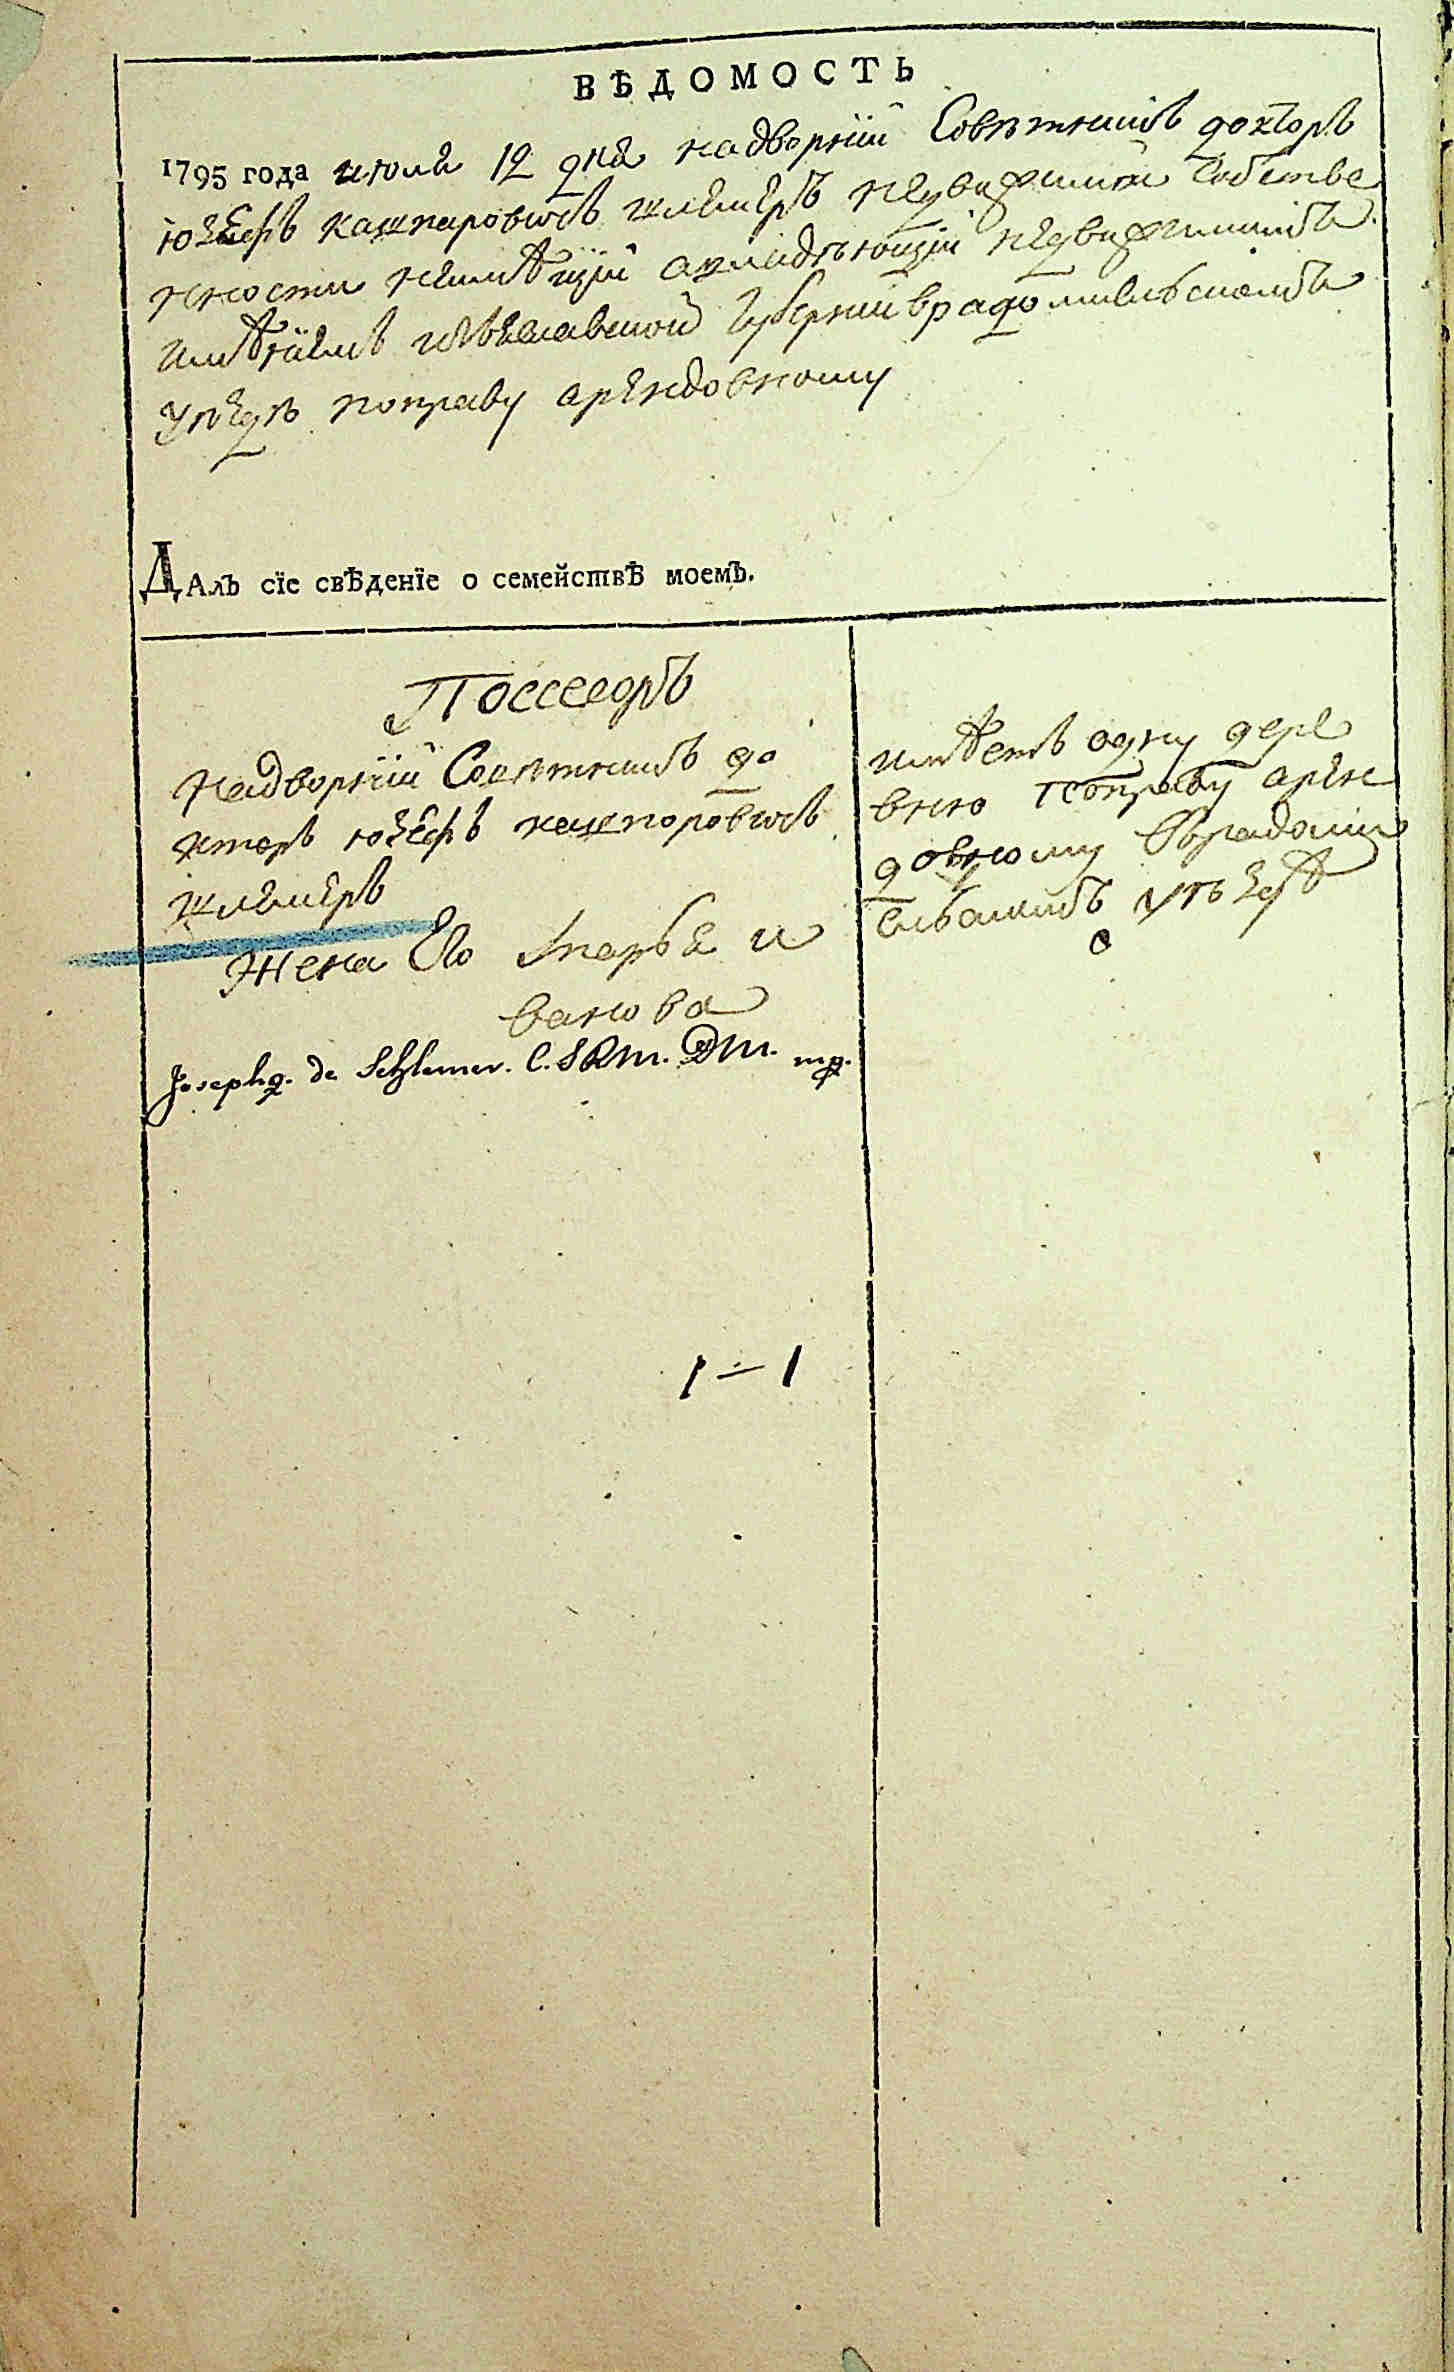 ВѢДОМОСТЬ
1795 года июля 12 дня надворнїй Совѣтникъ докторъ
юзефъ кашпаровичъ шлемеръ недвижимой собстве
нности неимѣющїй авладѣющїй недвижимимъ
имѣнїемъ Губернїи врадомисльскомъ
уѣздѣ поправу арендовному
ДАлъ сїе свѣденїе о семействѣ моемъ.
Поссесоръ
надворнїй Совѣтникъ до
кторъ юзефъ кашпоровичъ
шлемеръ
Жена Его Марья и
ванова
Josephq. de Schlemer. C. S R M. D M. mp.
имѣетъ одну дере
вню поправу арен
довному Врадоми
сльскимъ уѣздѣ
1 — 1